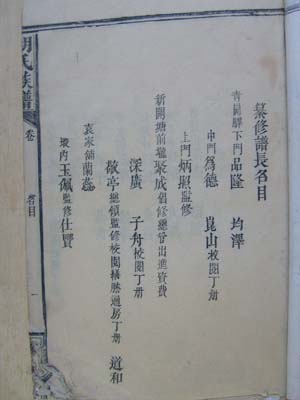 纂修譜長名目
青圓驛下門品隆 均澤
中門為德 崑山校閱丁册
上門炳照監修
新開塘前壠聚成倡修總曾出進資費
深廣 子舟校閱丁册
敬亭總領監修校閱橋勝通房丁册 道和
袁家舖蘭蕊
壋內玉佩監修仕賢
胡氏族譜 卷 名目 一